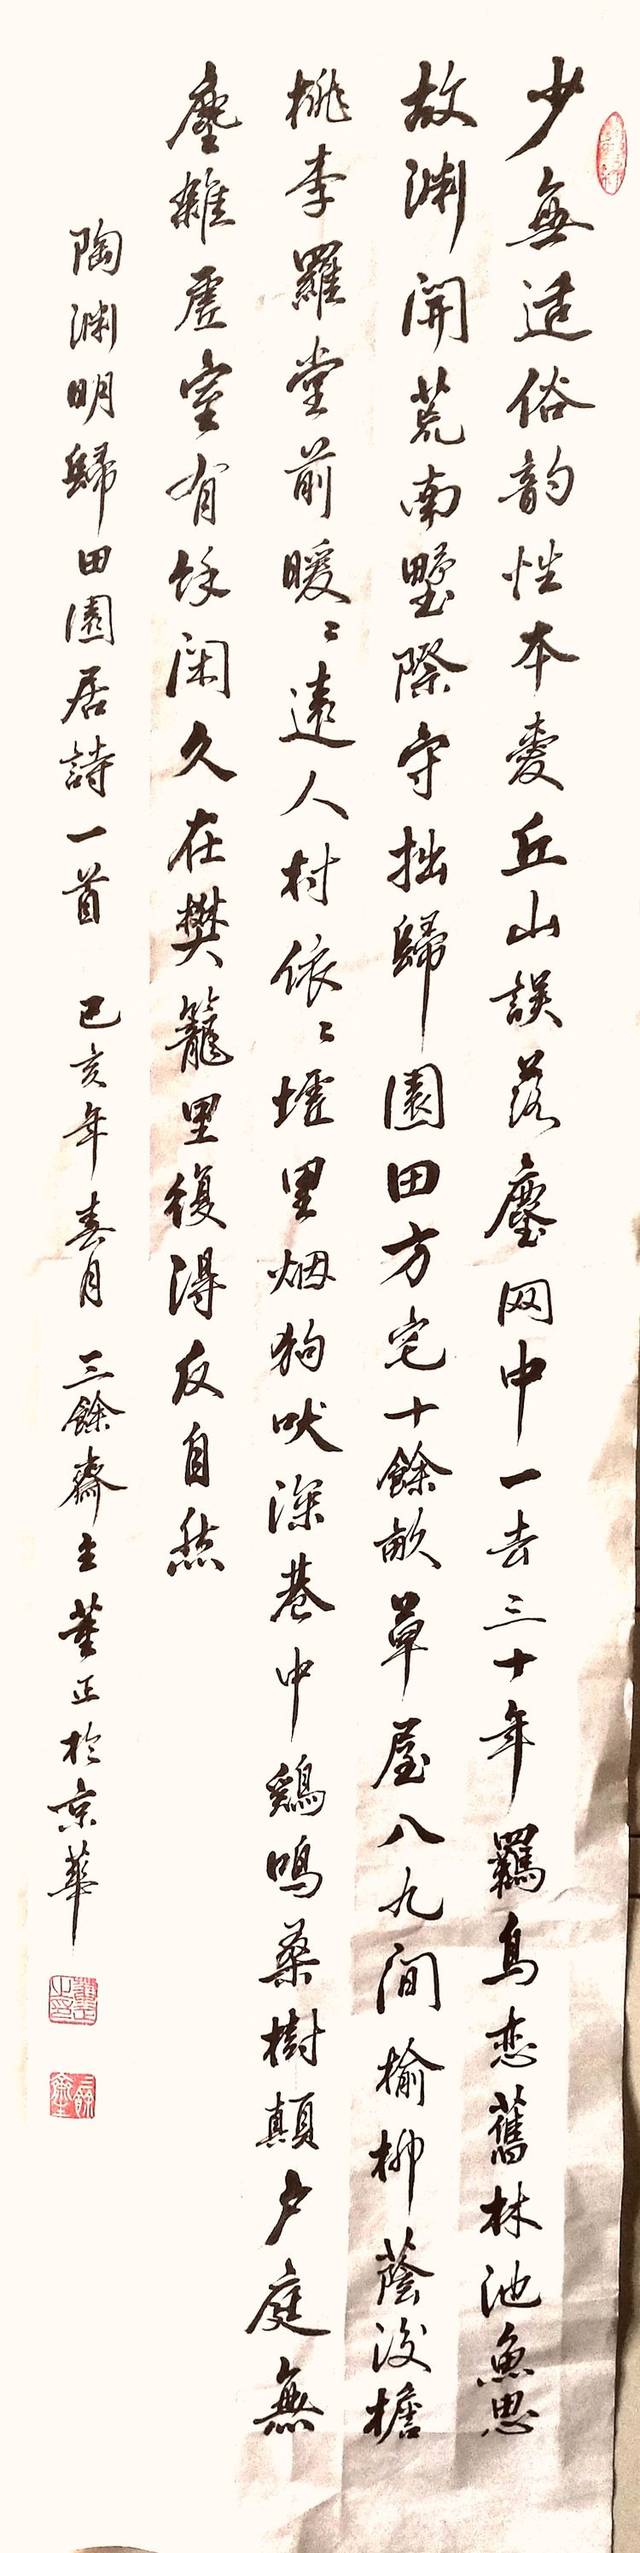 少無适俗韵性本愛丘山誤落塵网中一去三十年羈鳥恋舊林池魚思
故渊開荒南壄際守拙歸園田方宅十餘畝草屋八九间榆柳蔭後檐
桃李羅堂前暖〻遠人村依〻墟里烟狗吠深巷中鷄鳴桑樹顛户庭無
塵雜虚室有馀闲久在樊籠里復得反自然
陶渊明歸田園居詩一首 己亥年春月 三餘齋主董正於京華